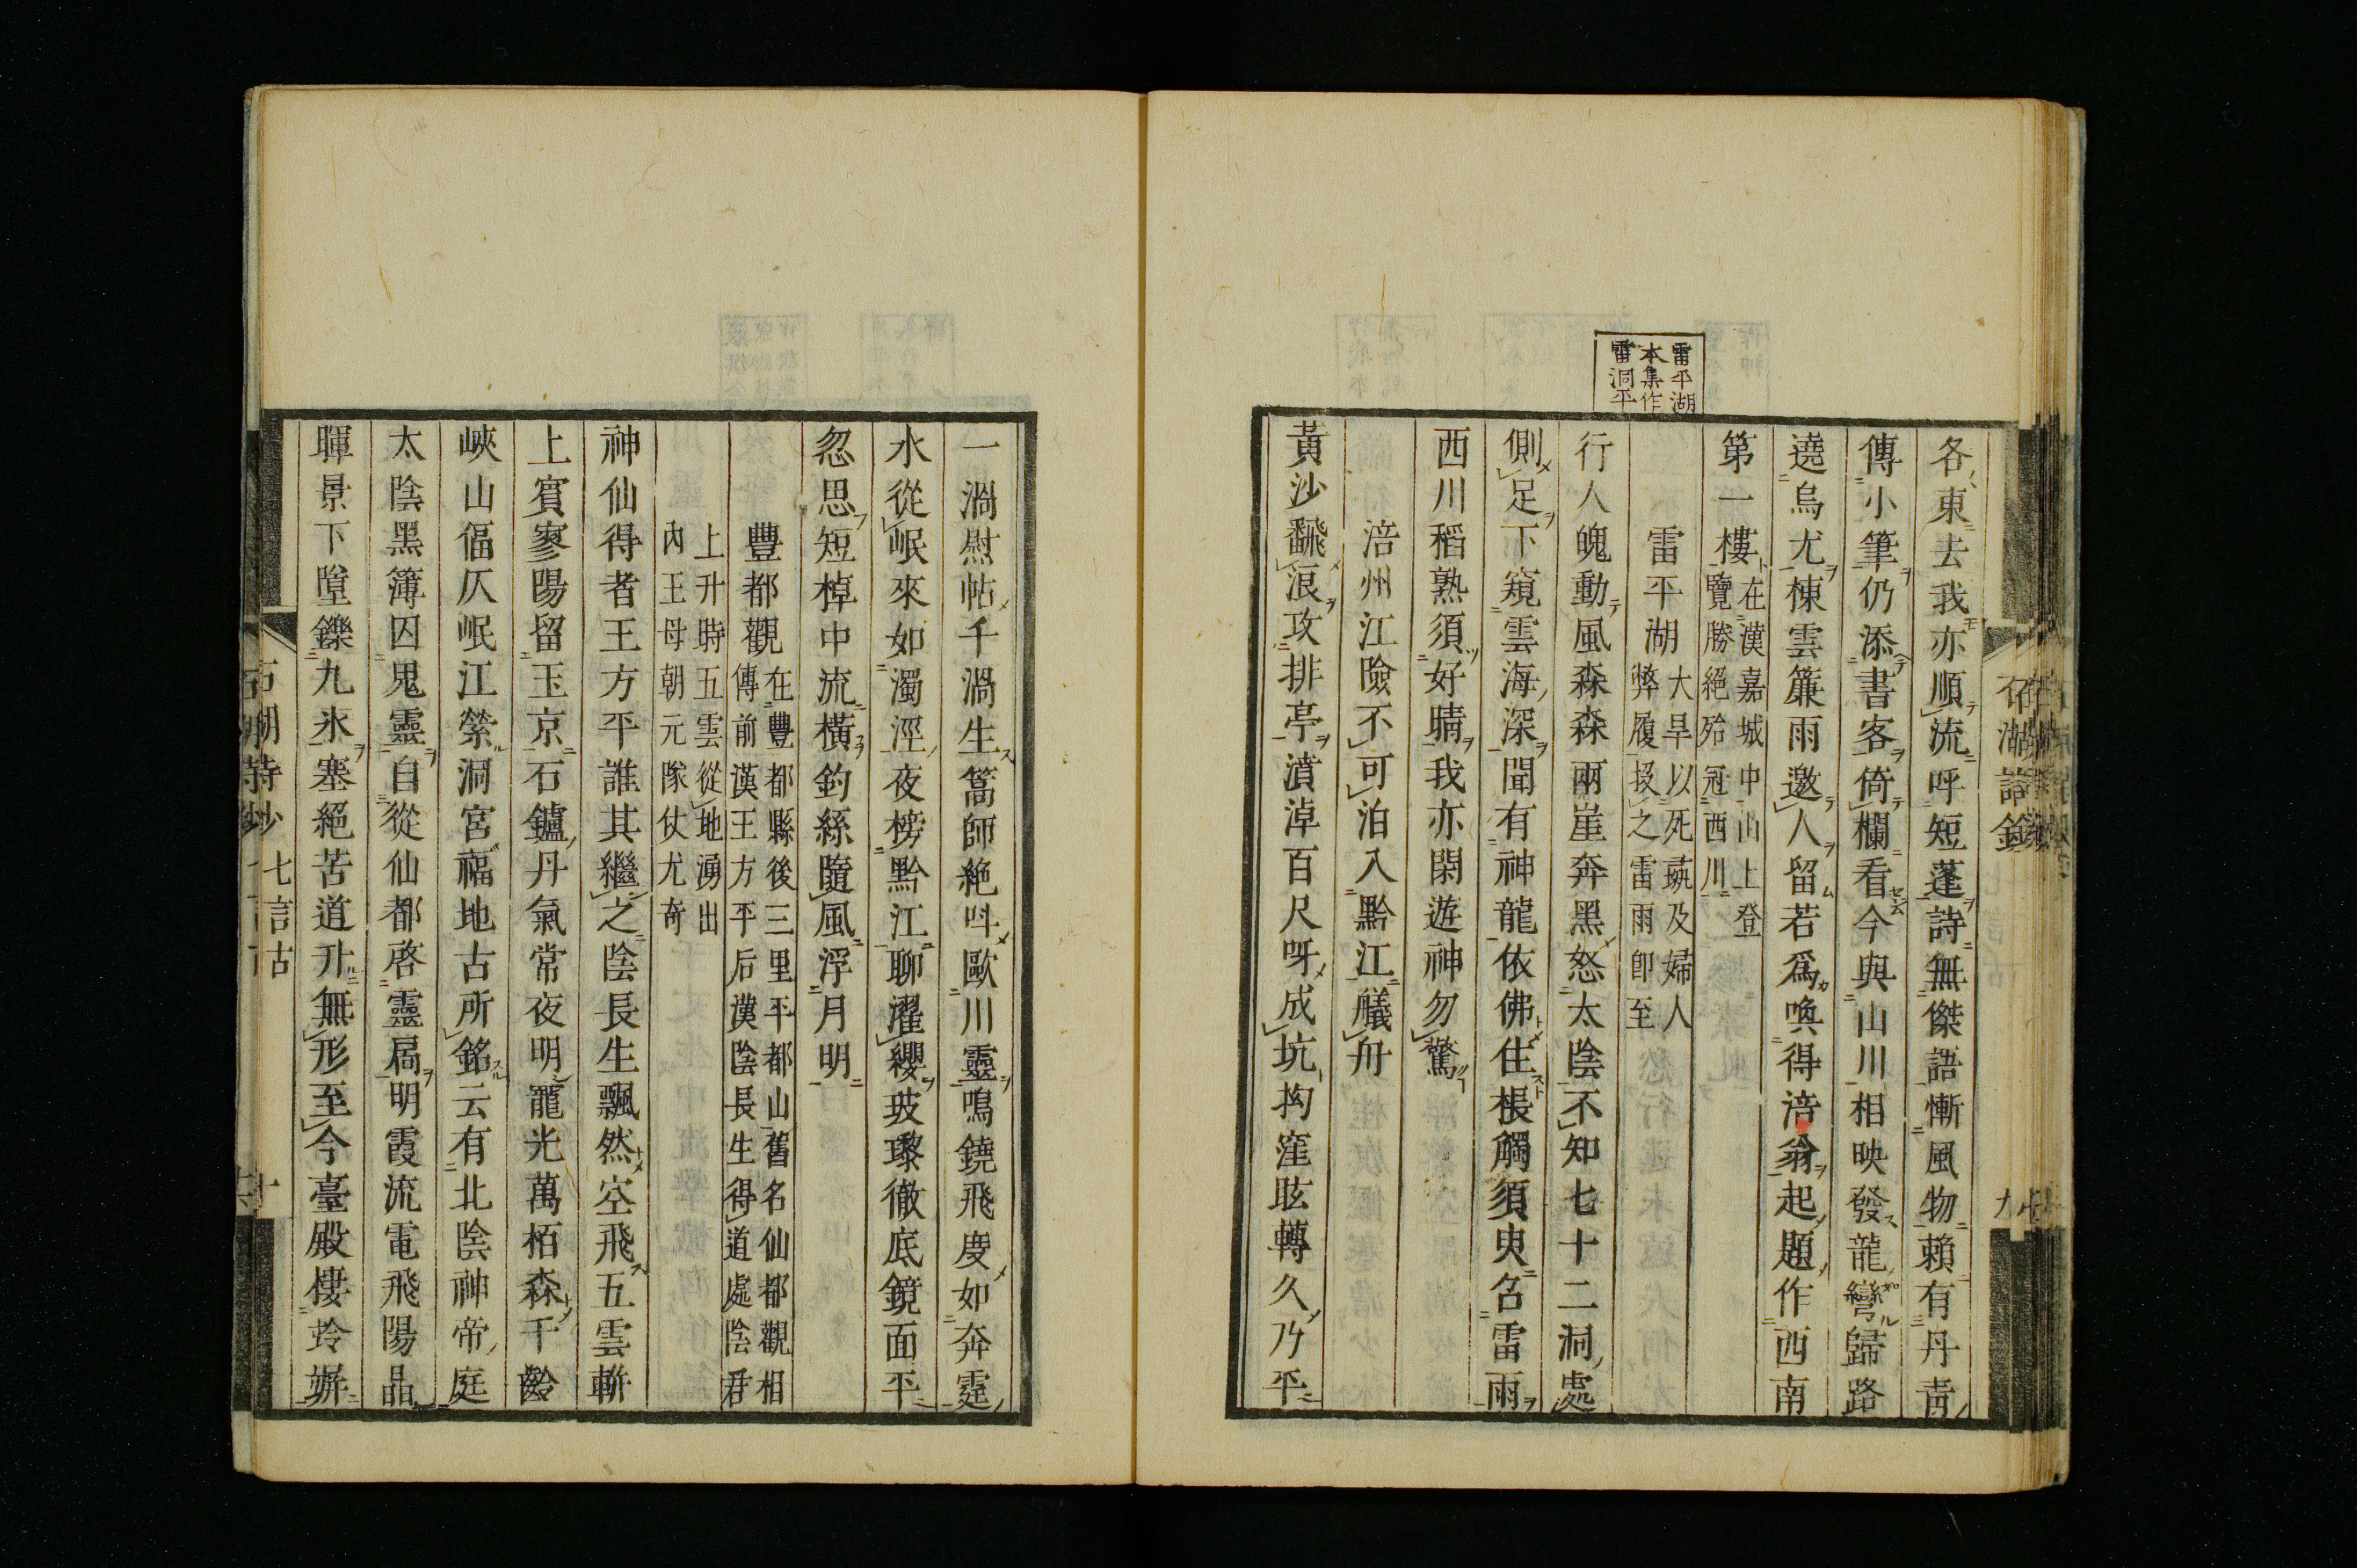 雷平湖
本集作
雷洞平
各東去我亦順流呼短蓬詩無傑語慚風物賴有丹青
傳小筆仍添書客倚欄看今與山川相映發龍彎歸路
遶烏尤棟雲簾雨邀人留若爲喚得涪翁起題作西南
第一樓
在漢嘉城中山上登
覽勝絕殆冠西川
雷平湖
大旱以死彘及婦人
弊履投之雷雨卽至
行人魄動風森森兩崖奔黑怒太陰不知七十二洞處
側足下窺雲海深聞有神龍依佛住棖觸須臾召雷雨
西川稻熟須好晴我亦閑遊神勿驚
涪州江險不可泊入黔江艤舟
黃沙翻浪攻排亭濆淖百尺呀成坑拘窪眩轉久乃平
一渦慰帖千渦生篙師絶叫歐川靈鳴鐃飛度如奔霆
水從岷來如濁涇夜榜黔江聊濯纓玻瓈徹底鏡面平
忽思短棹中流橫釣絲隨風浮月明
豐都觀
在豐都縣後三里平都山舊名仙都觀相
傳前漢王方平后漢陰長生得道處陰君
上升時五雲從地湧出
內王母朝元隊仗尤奇
神仙得者王方平誰其繼之陰長生飄然空飛五雲軿
上賓寥陽留玉京石鑪丹氣常夜明籠光萬栢森千齡
峽山偪仄岷江縈洞宮福地古所銘云有北陰神帝庭
太陰黑簿囚鬼靈自從仙都啓靈扃明霞流電飛陽晶
暉景下墮鑠九氷塞絕苦道升無形至今臺殿棲竛竮
石湖詩鈔
七言古
十
石湖詩鈔
九